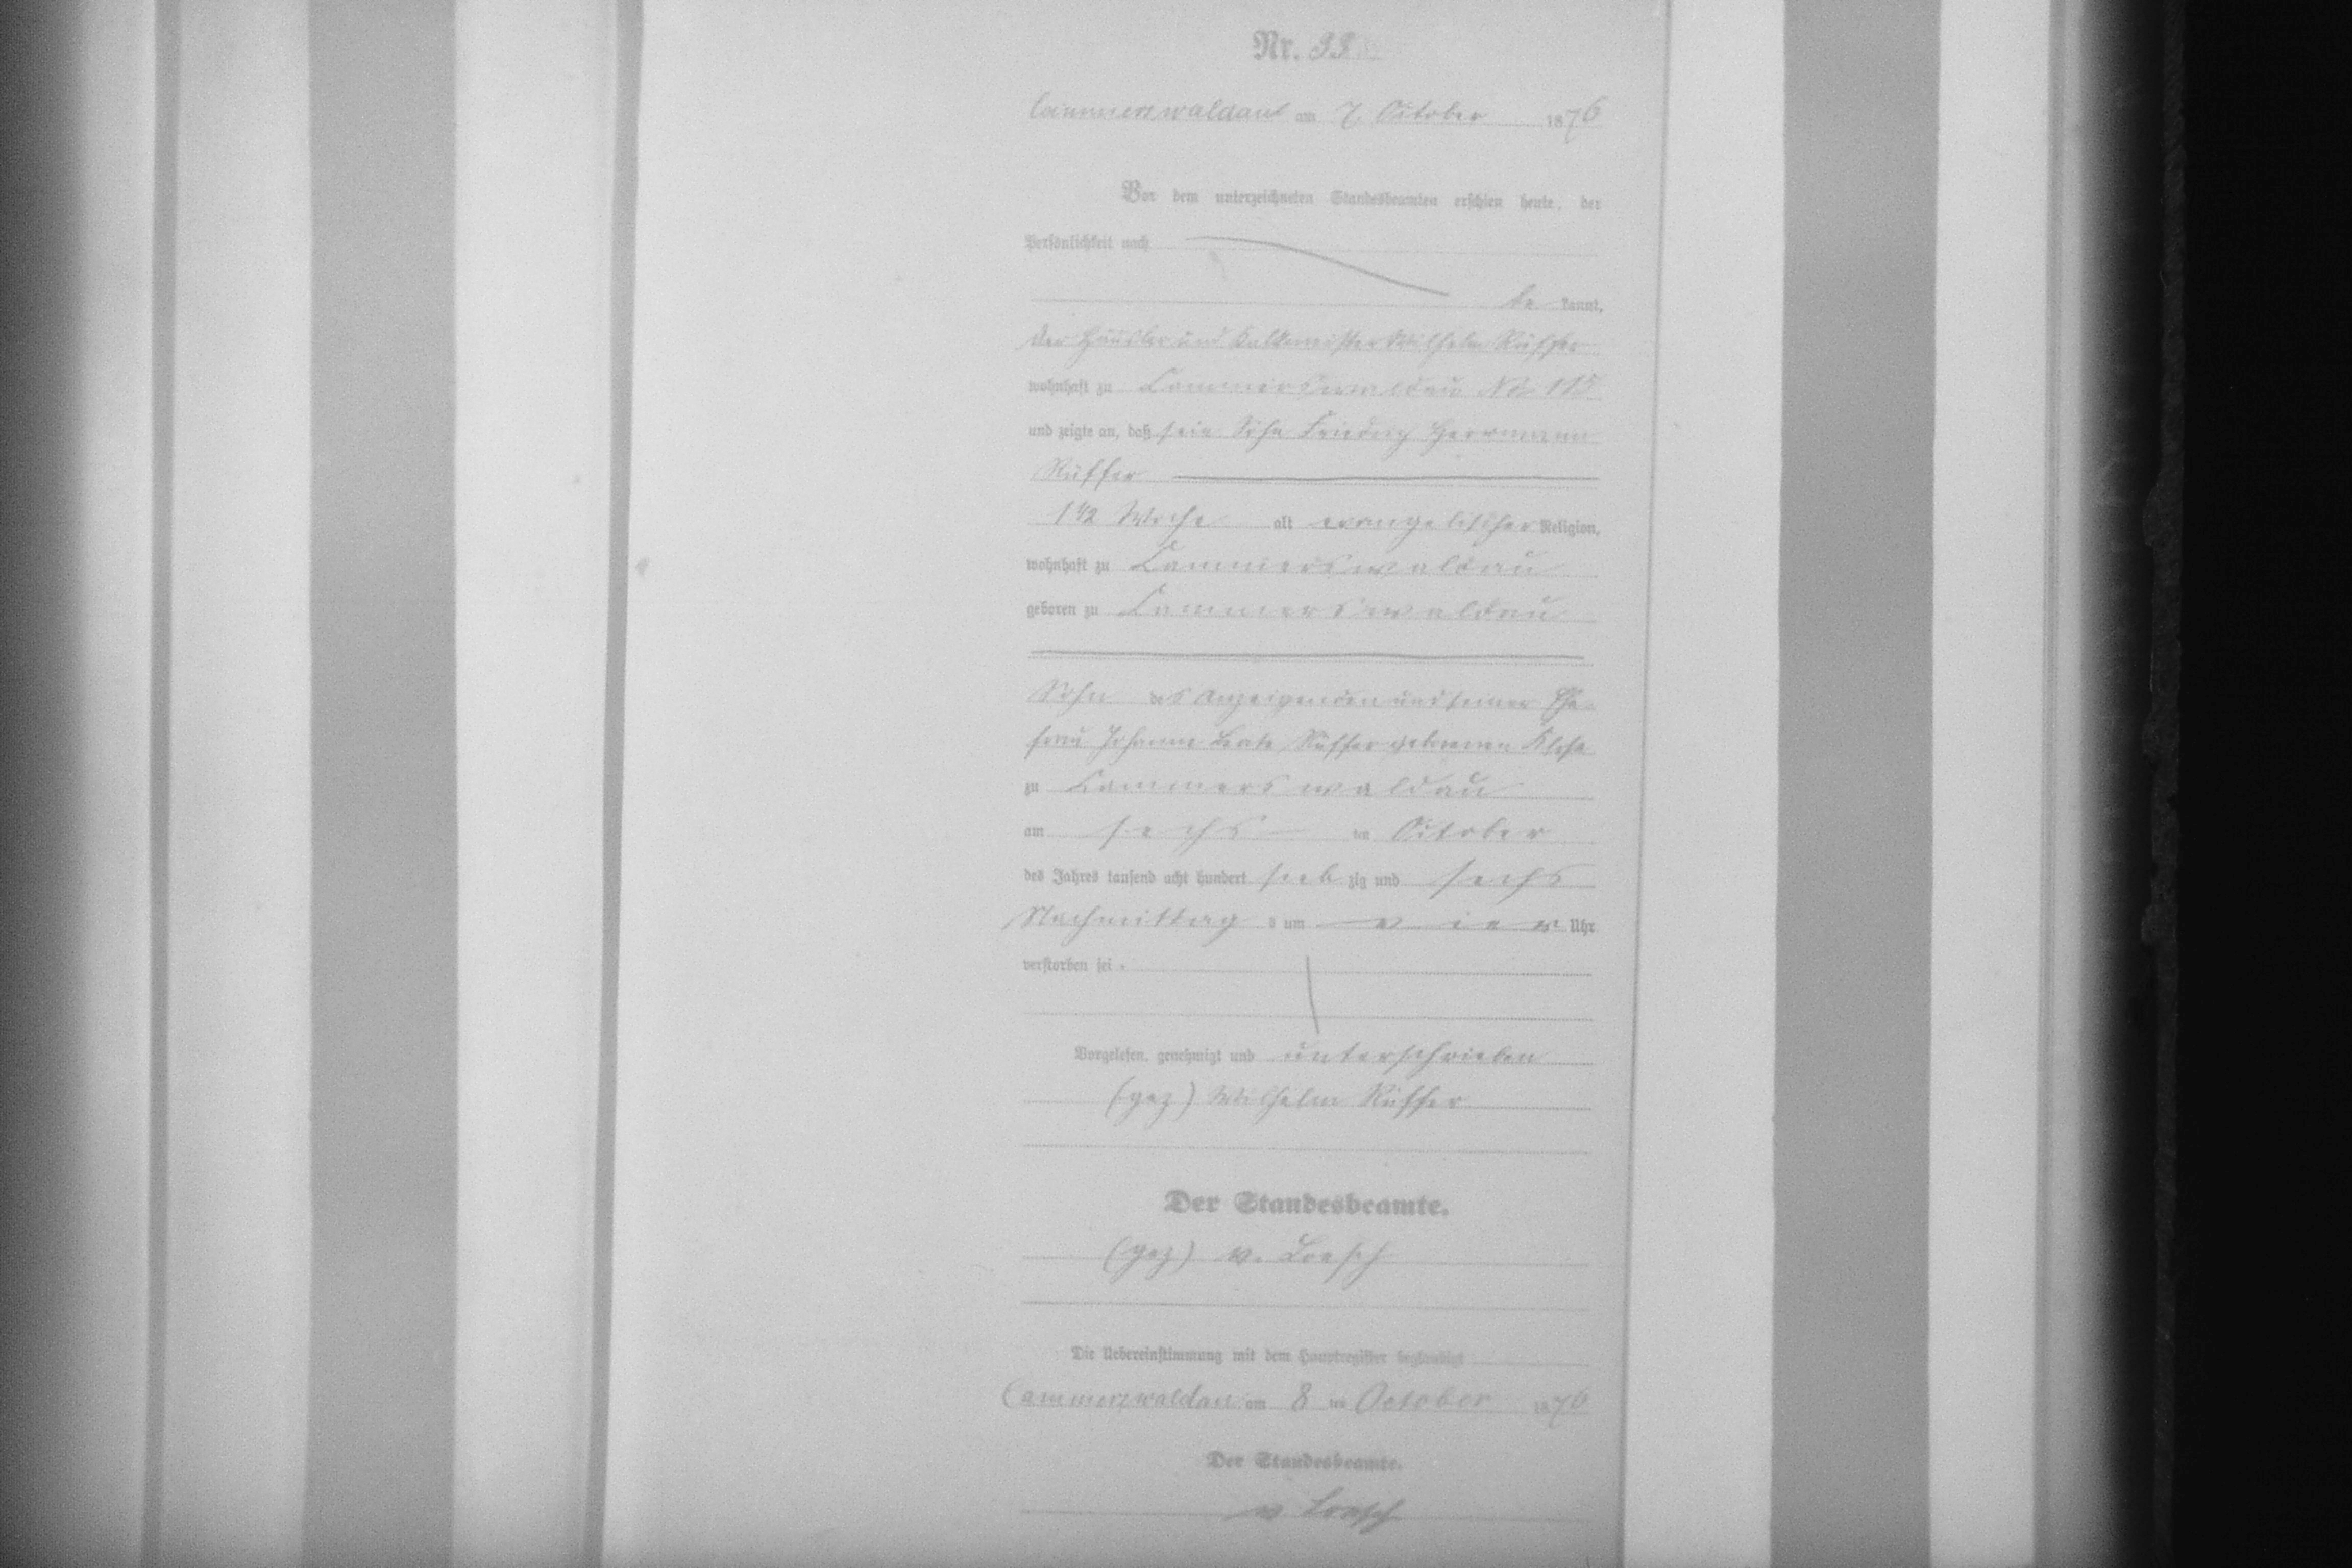 Nr. 33
Cammerswaldau am 7 October 1876
Vor dem unterzeichneten Standesbeamten erschien heute, der
Persönlichkeit nach
be kannt,
der Häusler und Kalkmeister Wilhelm Rüffer
wohnhaft zu Cammerswaldau No 115
und zeigte an, daß sein Sohn Friedrich Herrmann
Rüffer
1 1/2 Woche alt evangelischer Religion,
wohnhaft zu Cammerswaldau
geboren zu Cammerswaldau
Sohn des Anzeigenden und seiner Ehe-
frau Johanne Beate Rüffer geborenen Klose
zu Cammerswaldau
am sechs ten October
des Jahres tausend acht hundert sieb zig und sechs
Nachmittag s um vier Uhr
verstorben sei.
Vorgelesen, genehmigt und unterschrieben
(gez) Wilhelm Rüffer
Der Standesbeamte.
(gez) v. Loesch
Die Uebereinstimmung mit dem Hauptregister beglaubigt
Cammerswaldau am 8 ten October 1876
Der Standesbeamte.
v. Loesch